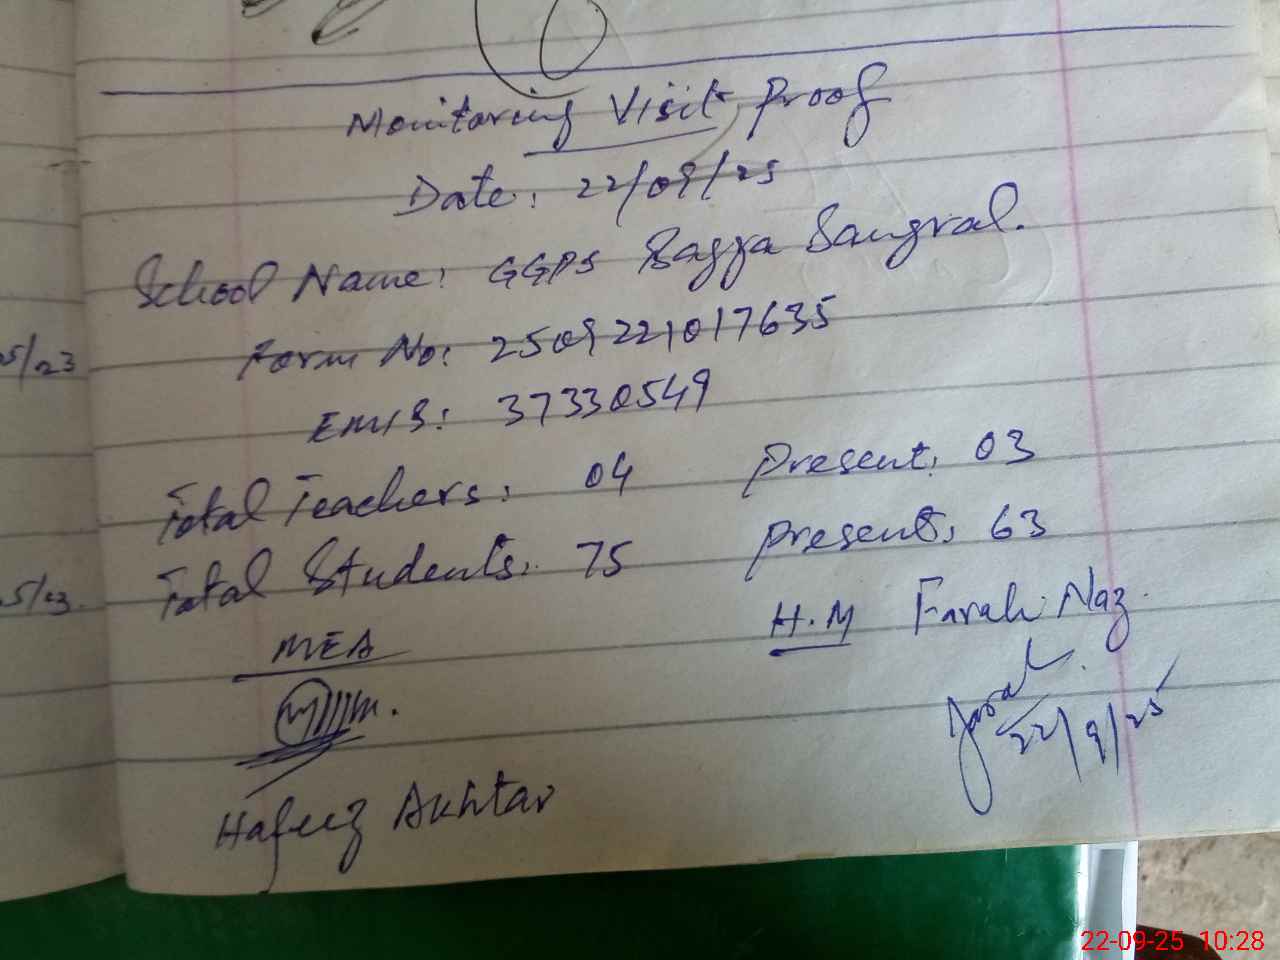 Monitoring Visit Proof
Date: 22/09/25
School Name: GGPS Bagga Sangral.
Form No: 2509221017635
EMIS: 37330549
Total Teachers: 04 Present: 03
Total Students: 75 Present: 63
MEA H.M Farah Naz.
22/9/25
Hafeez Akhtar
5/23
5/23
22-09-25 10:28